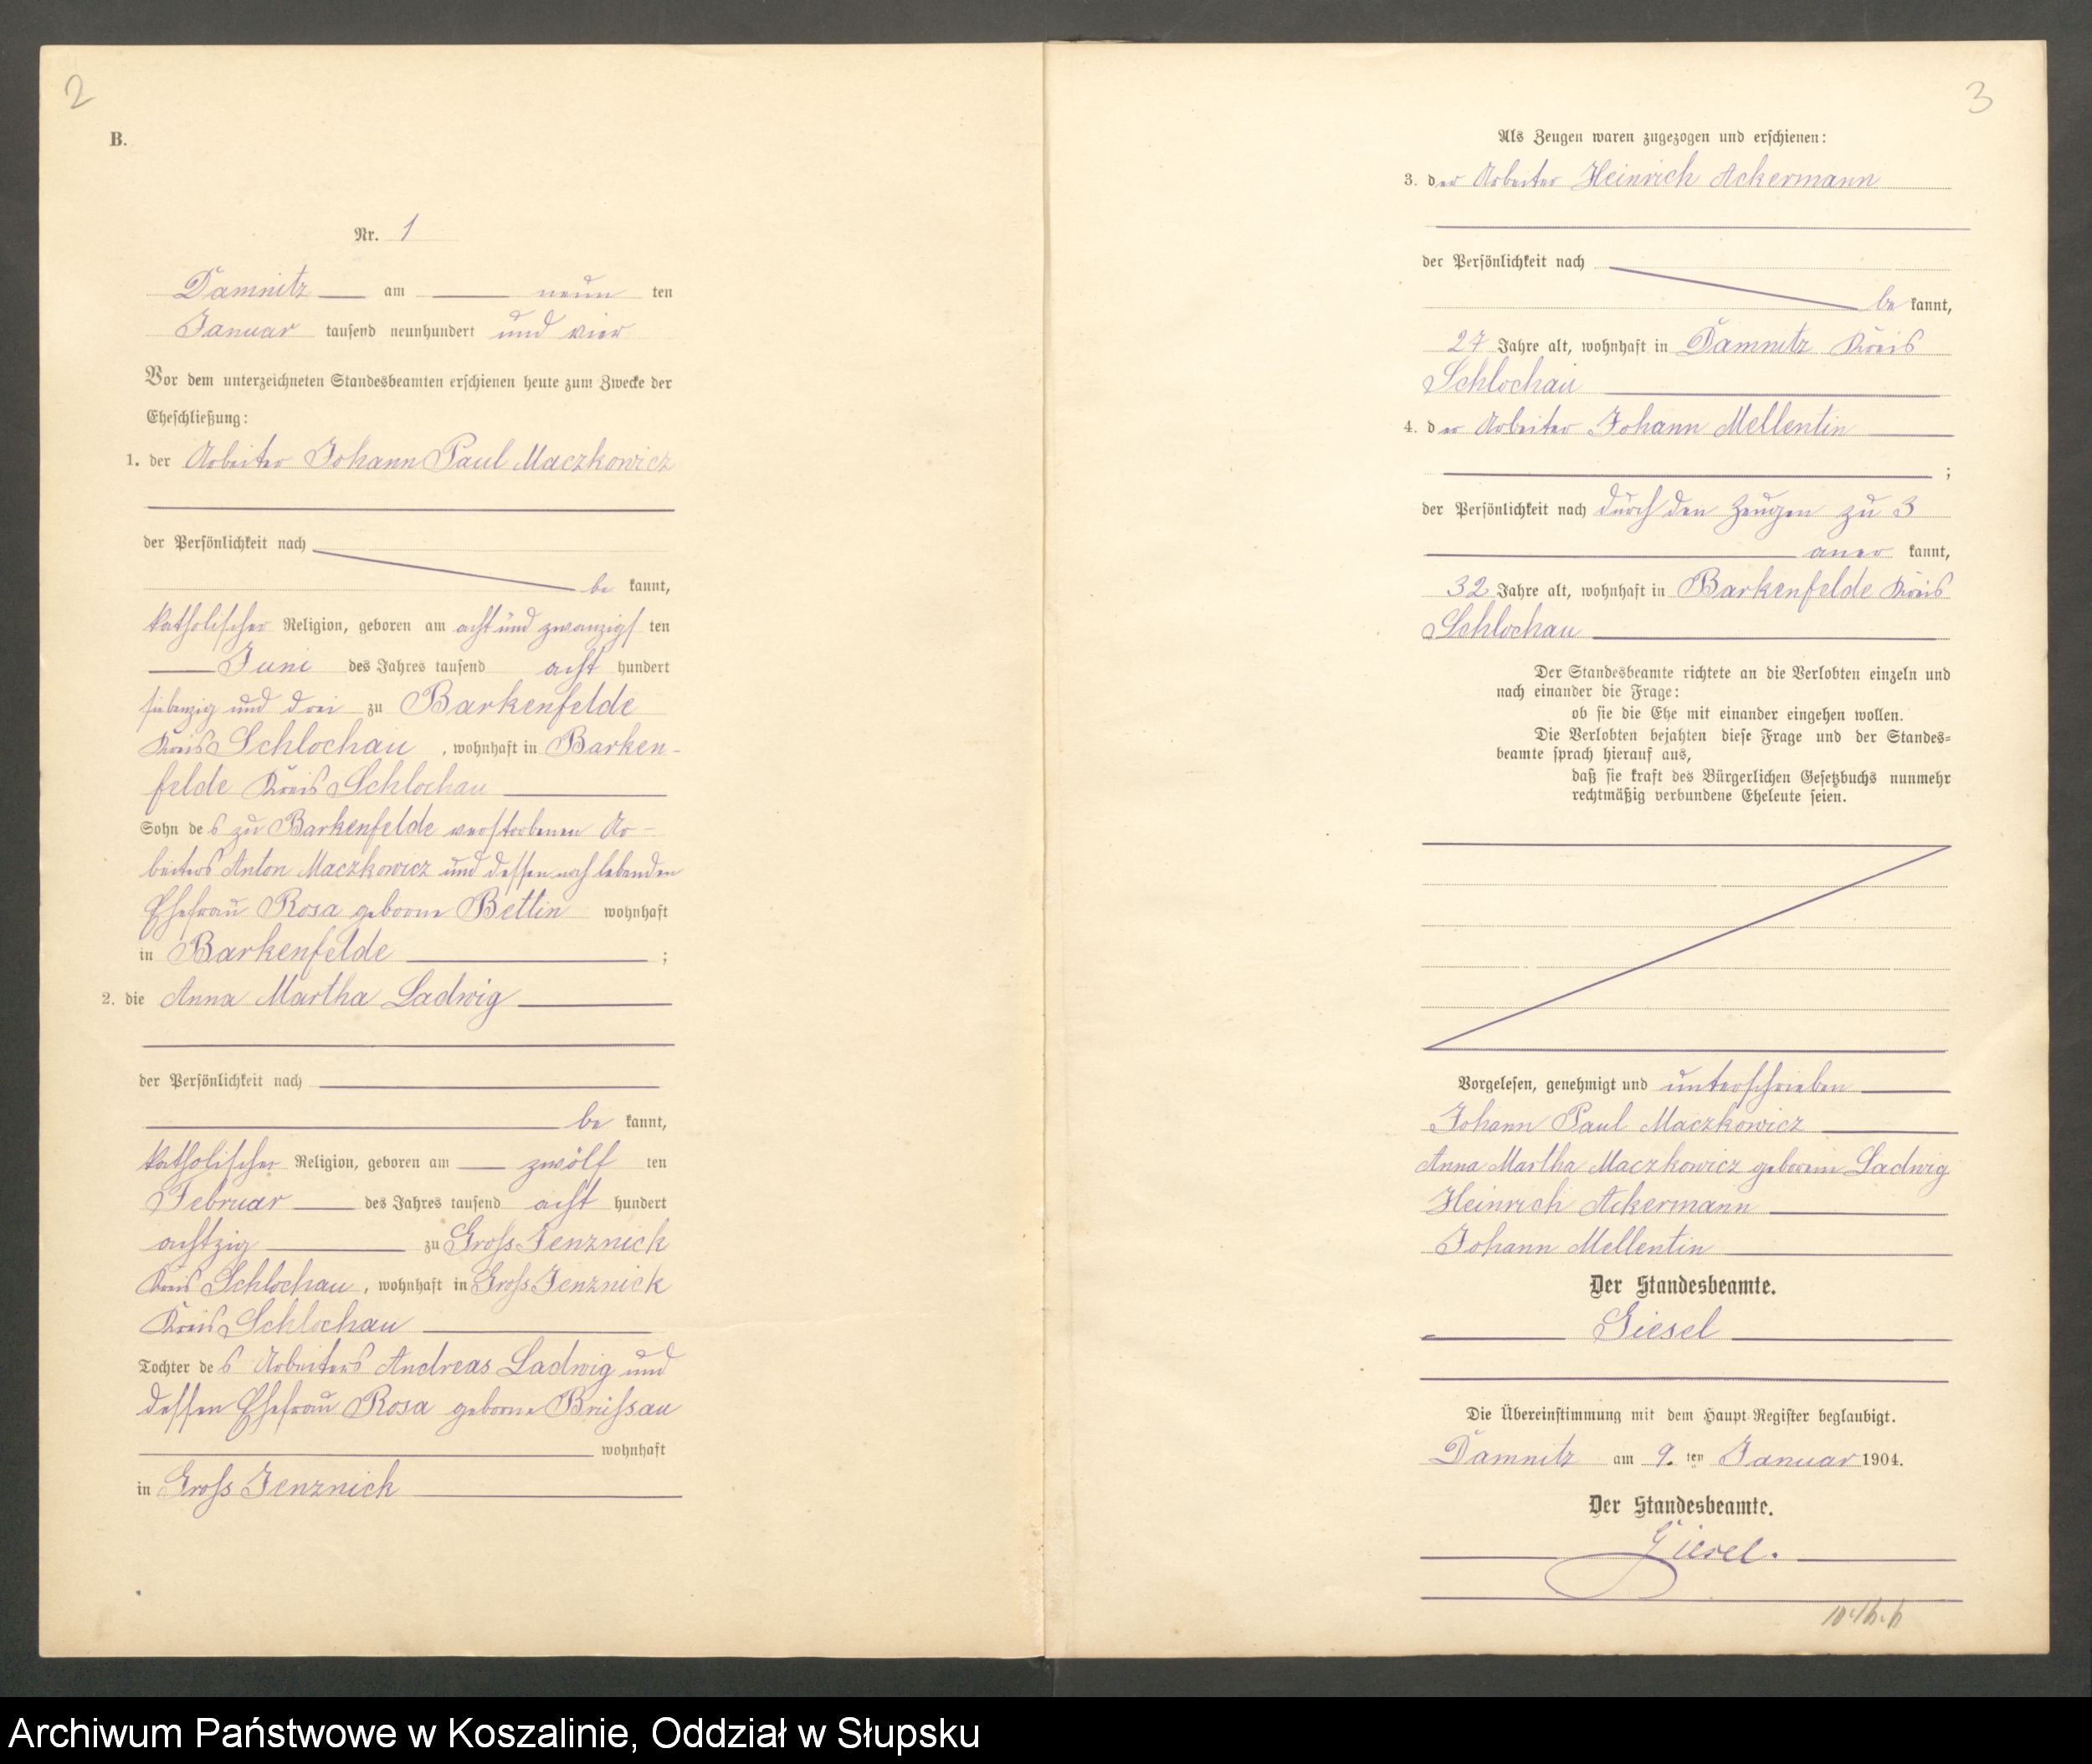 2
B.
Nr. 1
Damnitz am neun ten
Januar tausend neunhundert und vier
Vor dem unterzeichneten Standesbeamten erschienen heute zum Zwecke der
Eheschließung:
1. der Arbeiter Johann Paul Maczkowicz
der Persönlichkeit nach
be kannt,
katholischer Religion, geboren am acht und zwanzigs ten
Juni des Jahres tausend acht hundert
siebenzig und drei zu Barkenfelde
Kreis Schlochau, wohnhaft in Barken-
felde Kreis Schlochau
Sohn des zu Barkenfelde verstorbenen Ar-
beiters Anton Maczkowicz und dessen noch lebenden
Ehefrau Rosa geborne Bettin wohnhaft
in Barkenfelde ;
2. die Anna Martha Ladwig
der Persönlichkeit nach
be kannt,
katholischer Religion, geboren am zwölf ten
Februar des Jahres tausend acht hundert
achtzig zu Gross Jenznick
Kreis Schlochau, wohnhaft in Gross Jenznick
Kreis Schlochau
Tochter des Arbeiters Andreas Ladwig und
dessen Ehefrau Rosa geborne Brüssau
wohnhaft
in Gross Jenznick
3
Als Zeugen waren zugezogen und erschienen:
3. der Arbeiter Heinrich Ackermann
der Persönlichkeit nach
be kannt,
27 Jahre alt, wohnhaft in Damnitz Kreis
Schlochau
4. der Arbeiter Johann Mellentin
;
der Persönlichkeit nach durch den Zeugen zu 3
aner kannt,
32 Jahre alt, wohnhaft in Barkenfelde Kreis
Schlochau
Der Standesbeamte richtete an die Verlobten einzeln und
nach einander die Frage:
ob sie die Ehe mit einander eingehen wollen.
Die Verlobten bejahten diese Frage und der Standes-
beamte sprach hierauf aus,
daß sie kraft des Bürgerlichen Gesetzbuchs nunmehr
rechtmäßig verbundene Eheleute seien.
Vorgelesen, genehmigt und unterschrieben
Johann Paul Maczkowicz
Anna Martha Maczkowicz geborene Ladwig
Heinrich Ackermann
Johann Mellentin
Der Standesbeamte.
Giesel
Die Übereinstimmung mit dem Haupt-Register beglaubigt.
Damnitz am 9. ten Januar 1904.
Der Standesbeamte.
Giesel.
Archiwum Państwowe w Koszalinie, Oddział w Słupsku